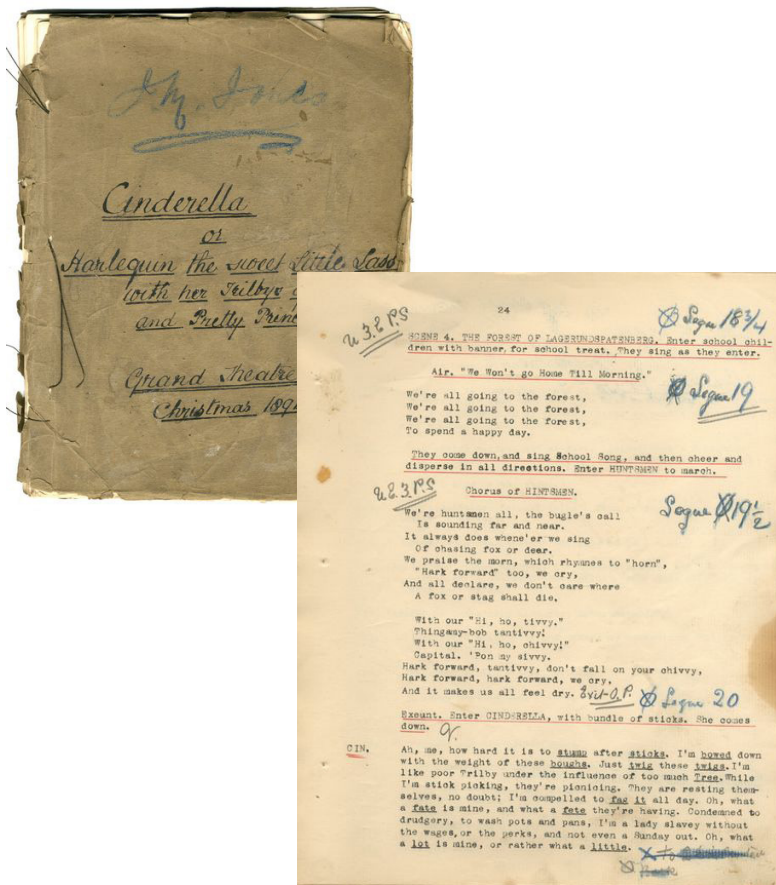 J. M. Jones
Cinderella
or
Harlequin the sweet Little Lass
with her Trilbys
and Pretty Prin
Grand Theatre
Christmas 189
24
Segue 18 3/4
U.3.E P.S
SCENE 4. THE FOREST OF LAGERUNDSPATENBERG. Enter school chil-
dren with banner, for school treat. They sing as they enter.
Air. "We Won't go Home Till Morning."
Segue 19
We're all going to the forest,
We're all going to the forest,
We're all going to the forest,
To spend a happy day.
They come down, and sing School Song, and then cheer and
disperse in all directions. Enter HUNTSMEN to march.
U.E.3.P.S
Chorus of HINTSMEN.
Segue 19 1/2
We're huntsmen all, the bugle's call
Is sounding far and near.
It always does whene'er we sing
Of chasing fox or dear.
We praise the morn, which rhymes to "horn",
"Hark forward" too, we cry,
And all declare, we don't care where
A fox or stag shall die.
With our "Hi, ho, tivvy."
Thingamy-bob tantivvy!
With our "Hi, ho, chivvy!"
Capital. 'Pon my sivvy.
Hark forward, tantivvy, don't fall on your chivvy,
Hark forward, hark forward, we cry,
And it makes us all feel dry. Exit O.P. Segue 20
Exeunt. Enter CINDERELLA, with bundle of sticks. She comes
down.
CIN. Ah, me, how hard it is to stump after sticks. I'm bowed down
with the weight of these boughs. Just twig these twigs. I'm
like poor Trilby under the influence of too much Tree. While
I'm stick picking, they're picnicing. They are resting them-
selves, no doubt; I'm compelled to fag it all day. Oh, what
a fate is mine, and what a fete they're having. Condemned to
drudgery, to wash pots and pans, I'm a lady slavey without
the wages, or the perks, and not even a Sunday out. Oh, what
a lot is mine, or rather what a little.
Back